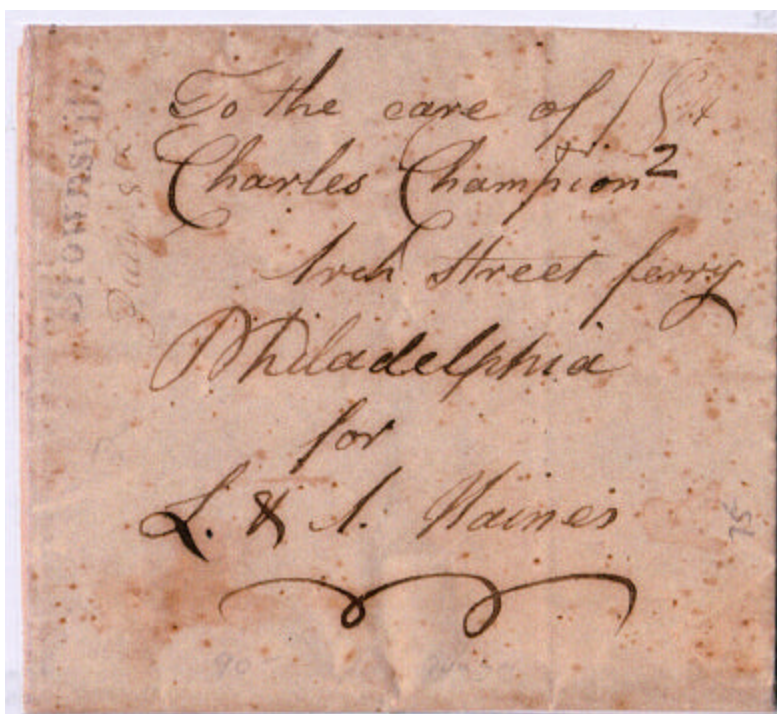 To the care of
Charles Champion 2
Arch Street ferry
Philadelphia
for
L. & A. Haines
75